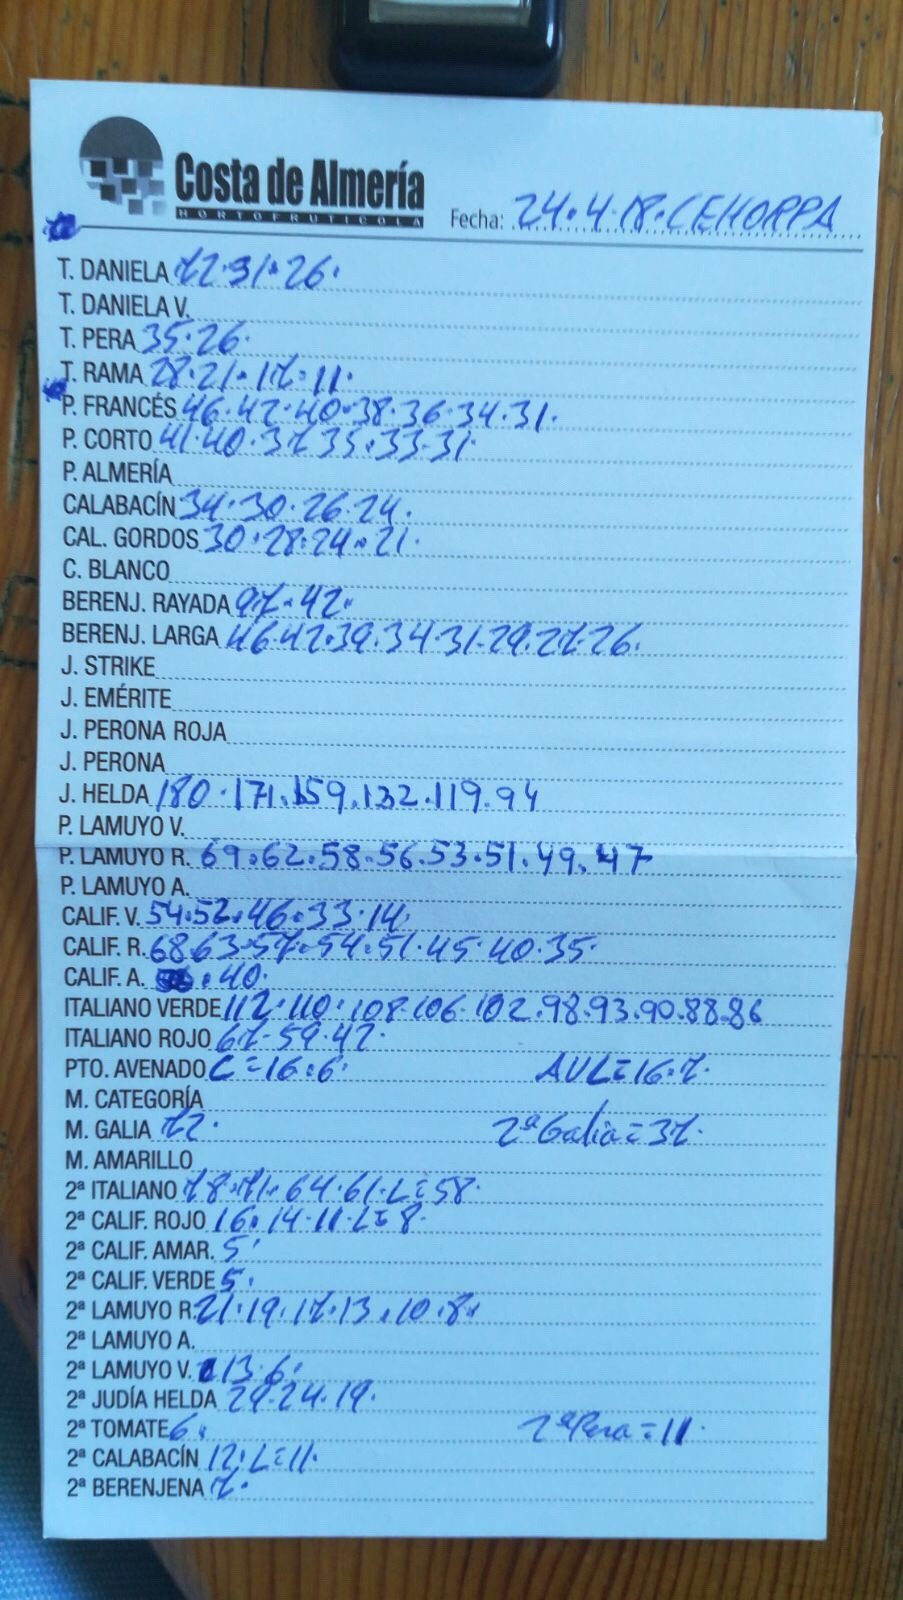 Costa de Almería
HORTOFRUTICOLA
Fecha: 24.4.18.CEHORPA
T. DANIELA 72.31.26.
T. DANIELA V.
T. PERA 35.26.
T. RAMA 28.21.17.11.
P. FRANCÉS 46.42.40.38.36.34.31.
P. CORTO 41.40.37.35.33.31.
P. ALMERÍA
CALABACÍN 34.30.26.24.
CAL. GORDOS 30.28.24.21.
C. BLANCO
BERENJ. RAYADA 97.42.
BERENJ. LARGA 46.42.39.34.31.29.27.26.
J. STRIKE
J. EMÉRITE
J. PERONA ROJA
J. PERONA
J. HELDA 180.171.159.132.119.94
P. LAMUYO V.
P. LAMUYO R. 69.62.58.56.53.51.49.47
P. LAMUYO A.
CALIF. V. 54.52.46.33.14.
CALIF. R. 68.63.57.54.51.45.40.35.
CALIF. A. .40.
ITALIANO VERDE 112.110.108.106.102.98.93.90.88.86
ITALIANO ROJO 67.59.42.
PTO. AVENADO C=16.6. AVL=16.7.
M. CATEGORÍA
M. GALIA 72. 2ª Galia=37.
M. AMARILLO
2ª ITALIANO 78.71.64.61.L=58.
2ª CALIF. ROJO 16.14.11.L=8.
2ª CALIF. AMAR. 5.
2ª CALIF. VERDE 5.
2ª LAMUYO R. 21.19.17.13.10.8.
2ª LAMUYO A.
2ª LAMUYO V. 13.6.
2ª JUDÍA HELDA 29.24.19.
2ª TOMATE 6. 2ª Pera=11.
2ª CALABACÍN 12.L=11.
2ª BERENJENA 7.